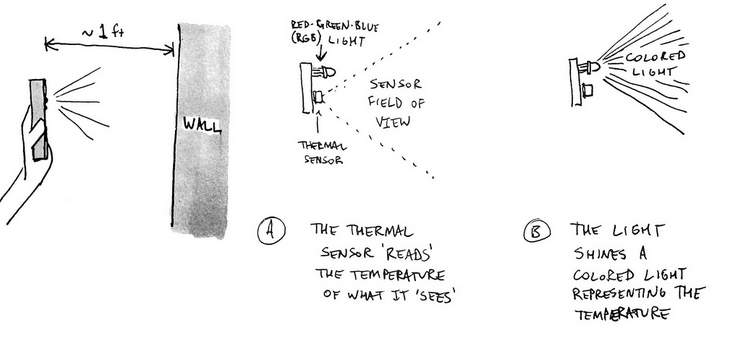 ~1ft
WALL
RED-GREEN-BLUE
(RGB) LIGHT
SENSOR
FIELD OF
VIEW
THERMAL
SENSOR
COLORED
LIGHT
A
THE THERMAL
SENSOR 'READS'
THE TEMPERATURE
OF WHAT IT 'SEES'
B
THE LIGHT
SHINES A
COLORED LIGHT
REPRESENTING THE
TEMPERATURE